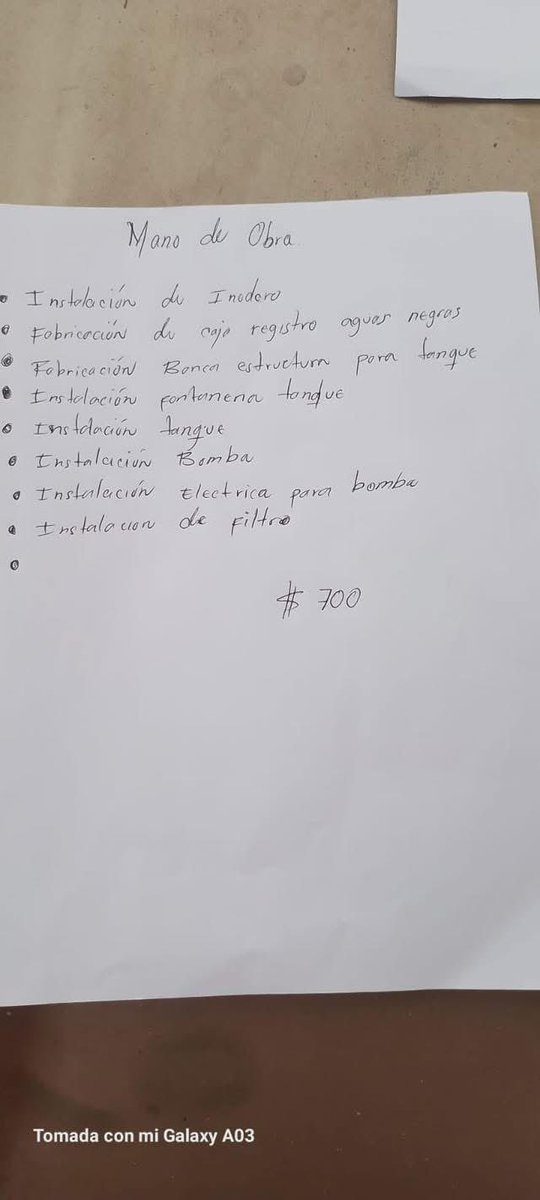 Mano de Obra
• Instalación de Inodoro
• Fabricación de caja registro aguas negras
• Fabricación Banca estructura para tanque
• Instalación fontaneria tanque
• Instalación tanque
• Instalación Bomba
• Instalación Electrica para bomba
• Instalacion de Filtro
•
$ 700
Tomada con mi Galaxy A03